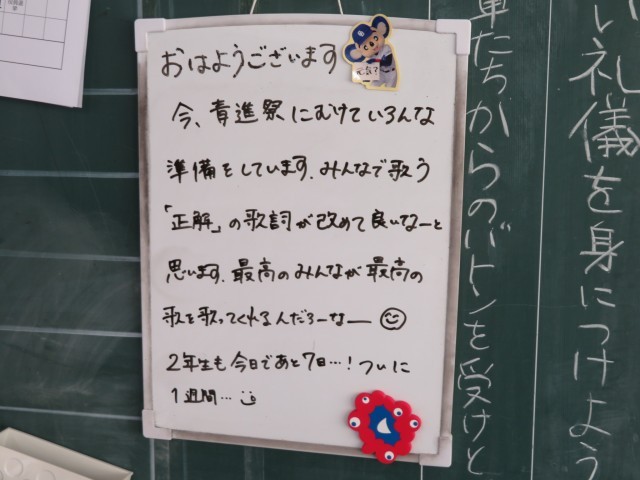 おはようございます
今、青進祭にむけていろんな
準備をしています。みんなで歌う
「正解」の歌詞が改めて良いなーと
思います。最高のみんなが最高の
歌を歌ってくれるんだろーなー
2年生も今日であと7日…！ついに
1週間…
い礼儀を身につけよう
輩たちからのバトンを受けと